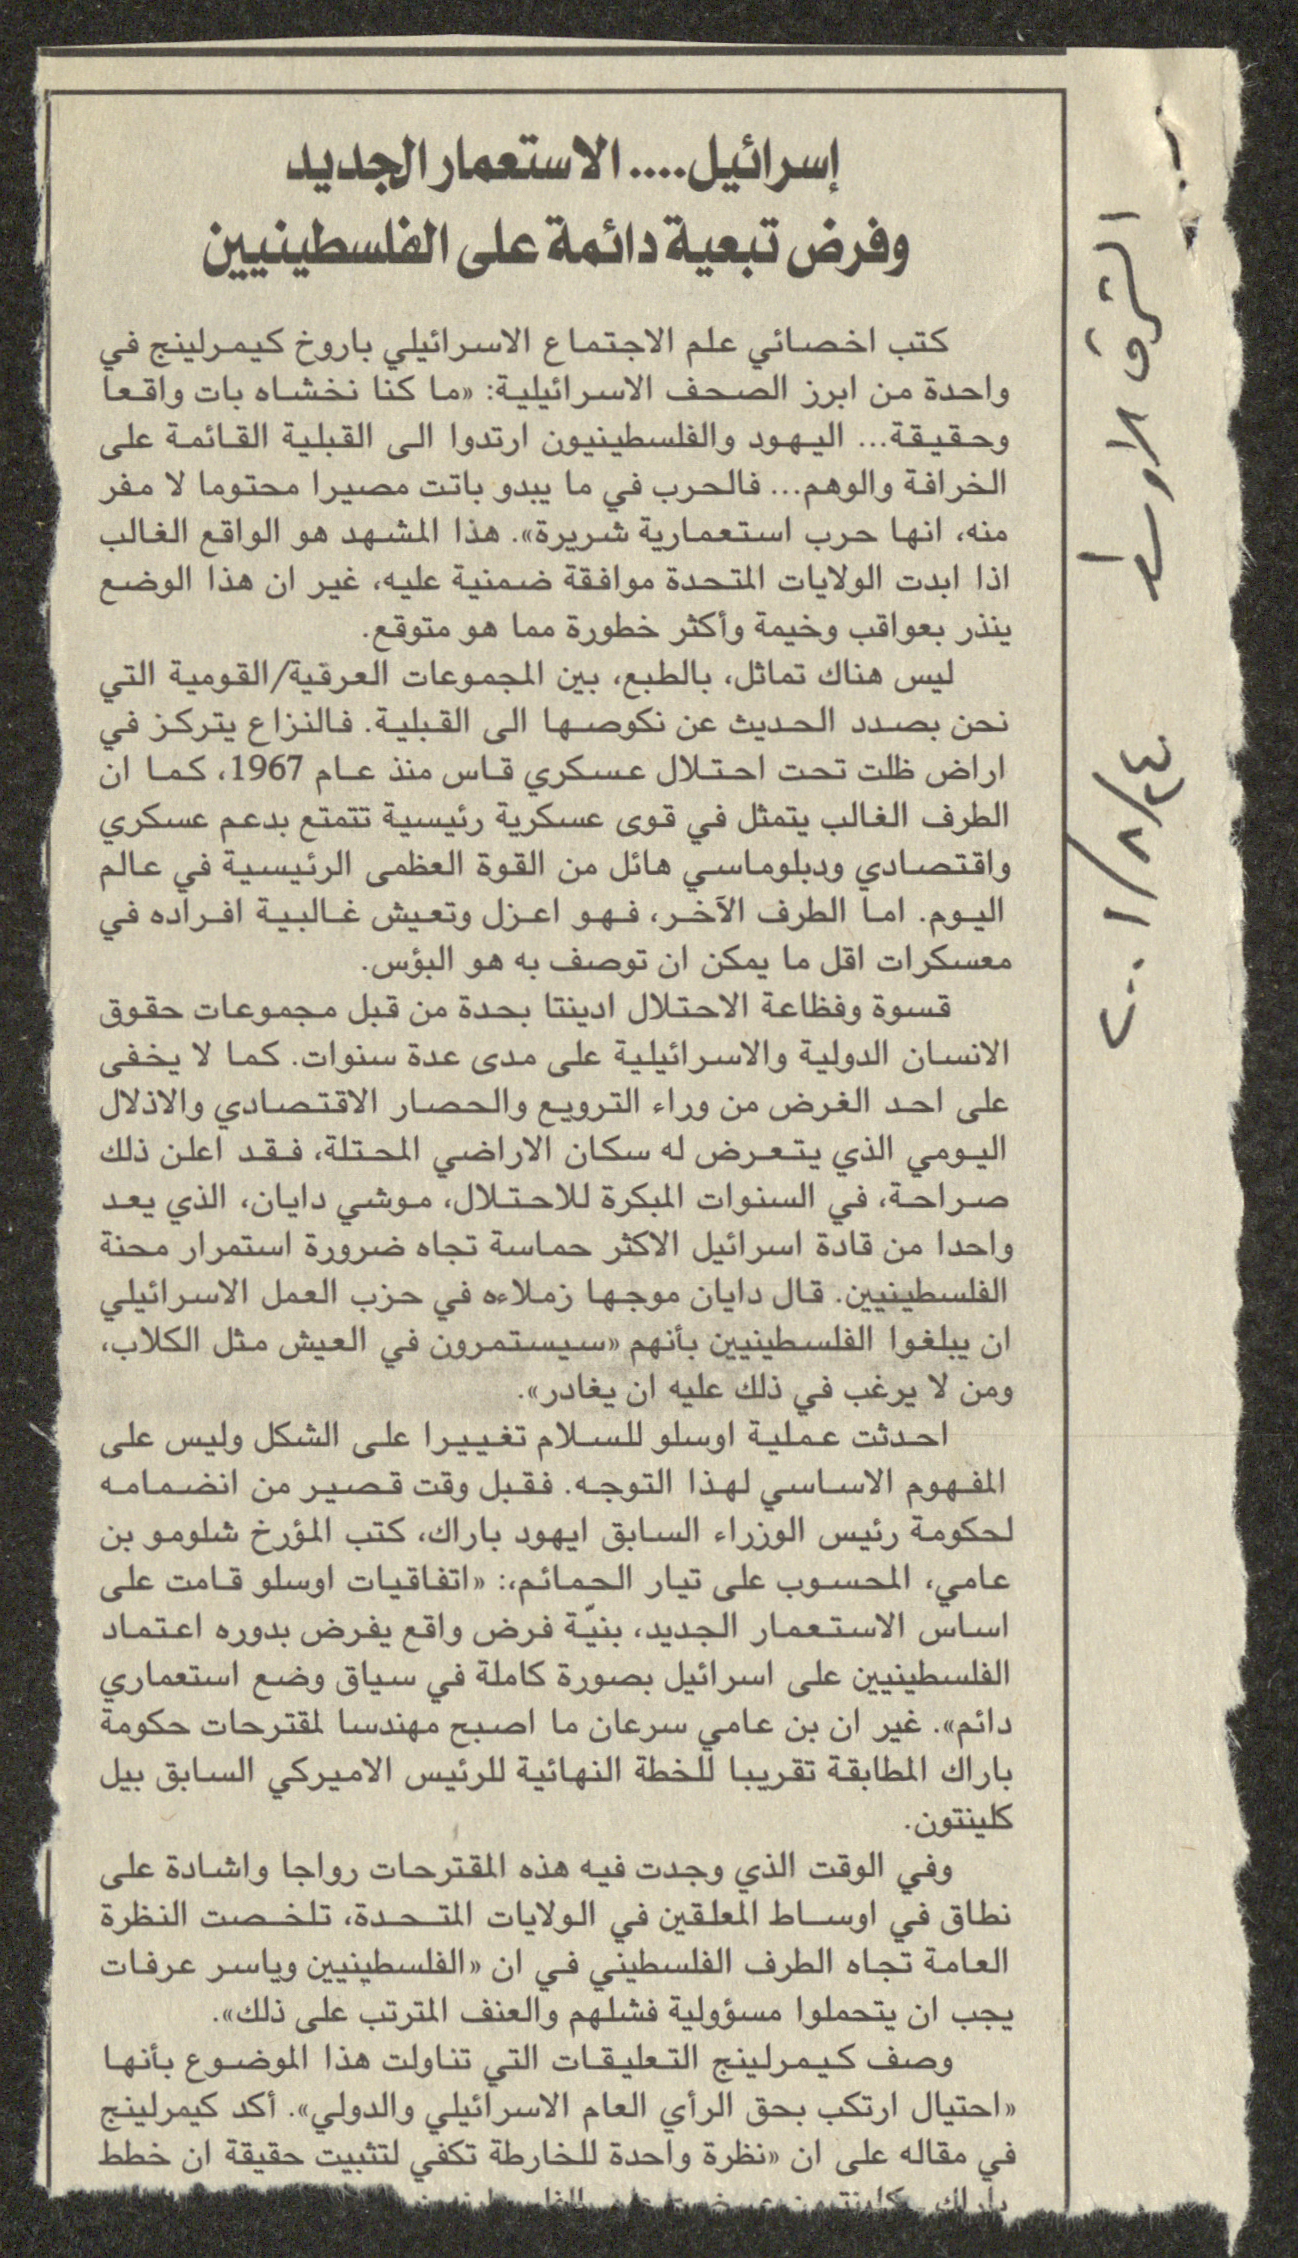 إسرائيل.... الاستعمار الجديد
وفرض تبعية دائمة على الفلسطينيين
كتب اخصائي علم الاجتماع الاسرائيلي باروخ كيمرلينج في
واحدة من ابرز الصحف الاسرائيلية: «ما كنا نخشاه بات واقعا
وحقيقة... اليهود والفلسطينيون ارتدوا الى القبلية القائمة على
الخرافة والوهم... فالحرب في ما يبدو باتت مصيرا محتوما لا مفر
منه، انها حرب استعمارية شريرة». هذا المشهد هو الواقع الغالب
اذا ابدت الولايات المتحدة موافقة ضمنية عليه، غير ان هذا الوضع
ينذر بعواقب وخيمة وأكثر خطورة مما هو متوقع.
ليس هناك تماثل، بالطبع، بين المجموعات العرقية/القومية التي
نحن بصدد الحديث عن نكوصها الى القبلية. فالنزاع يتركز في
اراض ظلت تحت احتلال عسكري قاس منذ عام 1967، كما ان
الطرف الغالب يتمثل في قوى عسكرية رئيسية تتمتع بدعم عسكري
واقتصادي ودبلوماسي هائل من القوة العظمى الرئيسية في عالم
اليوم. اما الطرف الآخر، فهو اعزل وتعيش غالبية افراده في
معسكرات اقل ما يمكن ان توصف به هو البؤس.
قسوة وفظاعة الاحتلال ادينتا بحدة من قبل مجموعات حقوق
الانسان الدولية والاسرائيلية على مدى عدة سنوات. كما لا يخفى
على احد الغرض من وراء الترويع والحصار الاقتصادي والاذلال
اليومي الذي يتعرض له سكان الاراضي المحتلة، فقد اعلن ذلك
صراحة، في السنوات المبكرة للاحتلال، موشي دايان، الذي يعد
واحدا من قادة اسرائيل الاكثر حماسة تجاه ضرورة استمرار محنة
الفلسطينيين. قال دايان موجها زملاءه في حزب العمل الاسرائيلي
ان يبلغوا الفلسطينيين بأنهم «سيستمرون في العيش مثل الكلاب،
ومن لا يرغب في ذلك عليه ان يغادر».
احدثت عملية اوسلو للسلام تغييرا على الشكل وليس على
المفهوم الاساسي لهذا التوجه. فقبل وقت قصير من انضمامه
لحكومة رئيس الوزراء السابق ايهود باراك، كتب المؤرخ شلومو بن
عامي، المحسوب على تيار الحمائم،: «اتفاقيات اوسلو قامت على
اساس الاستعمار الجديد، بنيّة فرض واقع يفرض بدوره اعتماد
الفلسطينيين على اسرائيل بصورة كاملة في سياق وضع استعماري
دائم». غير ان بن عامي سرعان ما اصبح مهندسا لمقترحات حكومة
باراك المطابقة تقريبا للخطة النهائية للرئيس الاميركي السابق بيل
كلينتون.
وفي الوقت الذي وجدت فيه هذه المقترحات رواجا واشادة على
نطاق في اوساط المعلقين في الولايات المتحدة، تلخصت النظرة
العامة تجاه الطرف الفلسطيني في ان «الفلسطينيين وياسر عرفات
يجب ان يتحملوا مسؤولية فشلهم والعنف المترتب على ذلك».
وصف كيمرلينج التعليقات التي تناولت هذا الموضوع بأنها
«احتيال ارتكب بحق الرأي العام الاسرائيلي والدولي». أكد كيمرلينج
في مقاله على ان «نظرة واحدة للخارطة تكفي لتثبيت حقيقة ان خطط
الشرق الاوسط
٢٠٠١/٨/٢٤